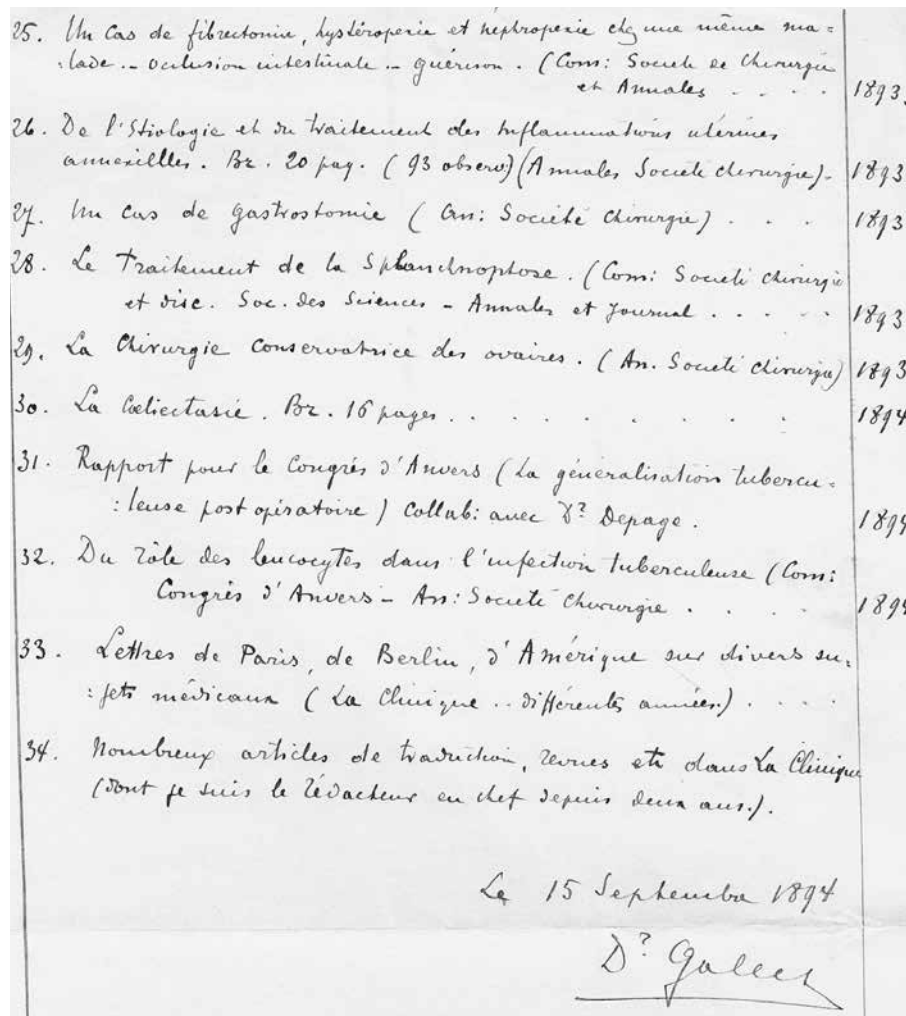 25. Un Cas de fibrectomie, hystéropexie et néphropexie chez une même ma=
:lade. - Occlusion intestinale - guérison. (Com: Societe de Chirurgie
et Annales . . . . 1893.
26. De l'Etiologie et du traitement des Inflammations utérines
annexielles. Br. 20 pag. (93 observ) (Annales Societe chirurgie). 1893
27. Un cas de Gastrostomie (An: Société Chirurgie) . . . 1893
28. Le Traitement de la Splanchnoptose. (Com: Societé chirurgie
et disc. Soc. des Sciences - Annales et Journal . . . . . 1893
29. La Chirurgie Conservatrice des ovaires. (An. Societé chirurgie) 1893
30. La Cœliectasie. Br. 16 pages . . . . . . . . 1894
31. Rapport pour le Congrès d'Anvers (La généralisation tubercu=
:leuse post opératoire) Collab: avec Dr Depage. 1894
32. Du rôle des leucocytes dans l'infection tuberculeuse (Com:
Congrès d'Anvers - An: Societé Chirurgie . . . . 1894
33. Lettres de Paris, de Berlin, d'Amérique sur divers su=
:jets médicaux (La Clinique .. différentes années.) . . . .
34. Nombreux articles de traduction, revues etc dans La Clinique
(dont je suis le rédacteur en chef depuis deux ans.).
Le 15 Septembre 1894
Dr Gallet